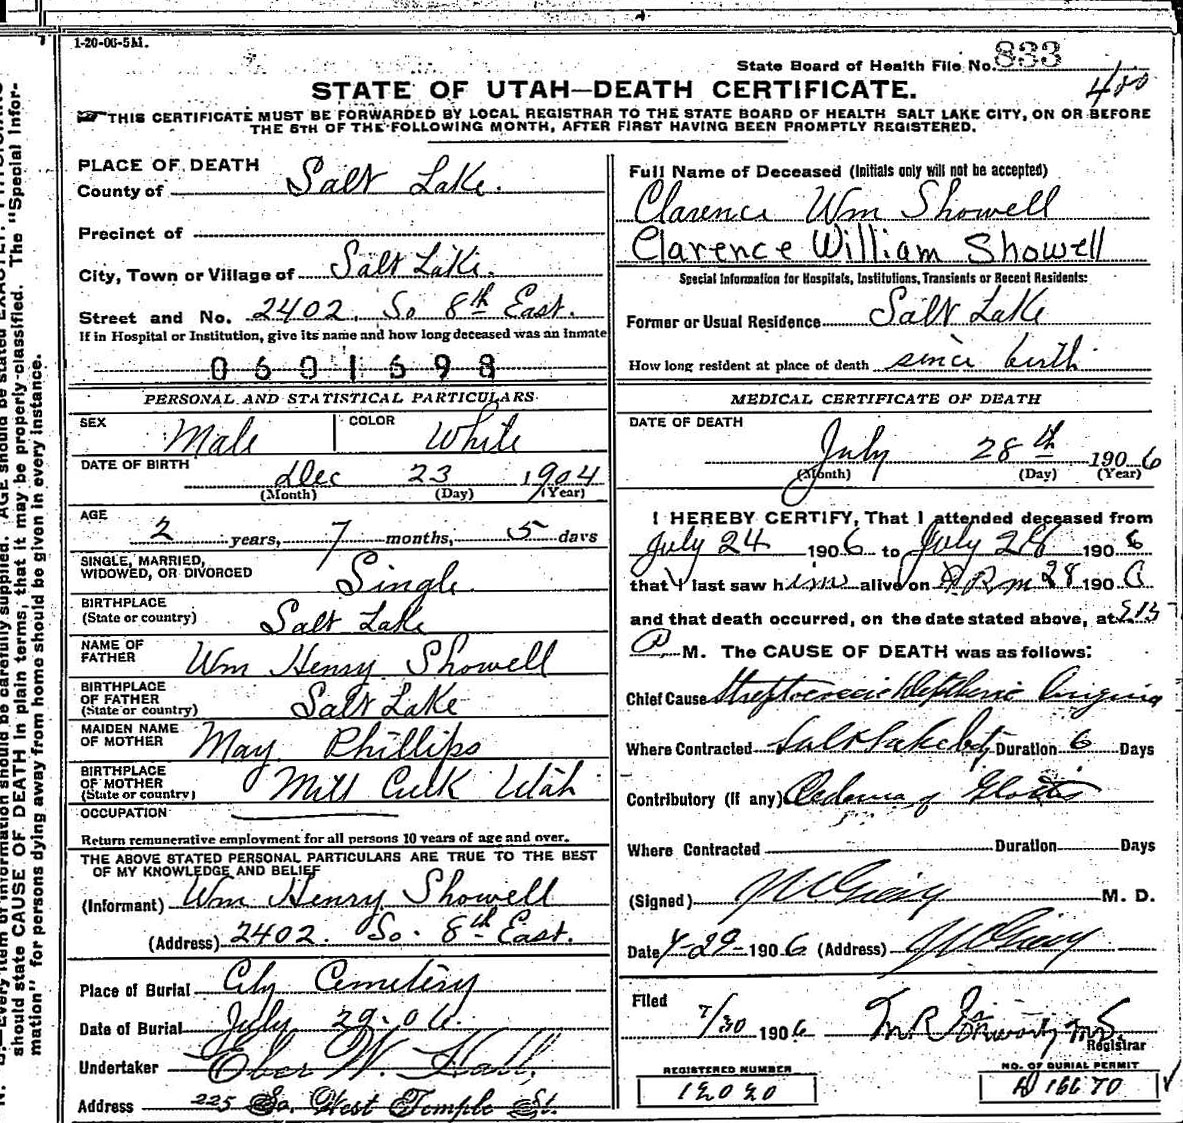 1-20-06-5M.
State Board of Health File No. 833
STATE OF UTAH—DEATH CERTIFICATE.
400
THIS CERTIFICATE MUST BE FORWARDED BY LOCAL REGISTRAR TO THE STATE BOARD OF HEALTH SALT LAKE CITY, ON OR BEFORE
THE 5TH OF THE FOLLOWING MONTH, AFTER FIRST HAVING BEEN PROMPTLY REGISTERED.
PLACE OF DEATH
County of Salt Lake.
Precinct of
City, Town or Village of Salt Lake.
Street and No. 2402. So 8th East.
If in Hospital or Institution, give its name and how long deceased was an Inmate
0601698
PERSONAL AND STATISTICAL PARTICULARS
SEX Male COLOR White
DATE OF BIRTH Dec 23 1904
(Month) (Day) (Year)
AGE
2 years, 7 months, 5 days
SINGLE, MARRIED,
WIDOWED, OR DIVORCED Single
BIRTHPLACE
(State or country) Salt Lake
NAME OF
FATHER Wm Henry Showell
BIRTHPLACE
OF FATHER
(State or country) Salt Lake
MAIDEN NAME
OF MOTHER May Phillips
BIRTHPLACE
OF MOTHER
(State or country) Mill Creek Utah
OCCUPATION
Return remunerative employment for all persons 10 years of age and over.
THE ABOVE STATED PERSONAL PARTICULARS ARE TRUE TO THE BEST
OF MY KNOWLEDGE AND BELIEF
(Informant) Wm Henry Showell
(Address) 2402. So. 8th East.
Place of Burial City Cemetery
Date of Burial July 29-06.
Undertaker Eber W. Hall.
Address 225 So. West Temple St.
Full Name of Deceased (Initials only will not be accepted)
Clarence Wm Showell
Clarence William Showell
Special Information for Hospitals, Institutions, Transients or Recent Residents:
Former or Usual Residence Salt Lake
How long resident at place of death since birth
MEDICAL CERTIFICATE OF DEATH
DATE OF DEATH
July 28th 1906
(Month) (Day) (Year)
I HEREBY CERTIFY, That I attended deceased from
July 24 1906 to July 28 1906
that I last saw him alive on 28 190
and that death occurred, on the date stated above, at
A M. The CAUSE OF DEATH was as follows:
Chief Cause Streptococcic Angina
Where Contracted Salt Lake City Duration 6 Days
Contributory (If any) Oedema of Glottis
Where Contracted Duration Days
(Signed) M. D.
Date 7-29-1906 (Address)
Filed 7/30 1906
Registrar
REGISTERED NUMBER
12020
NO. OF BURIAL PERMIT
16670
N. B.—Every item of information should be carefully supplied. AGE should be stated EXACTLY.
should state CAUSE OF DEATH in plain terms, that it may be properly classified. The "Special Infor-
mation" for persons dying away from home should be given in every instance.